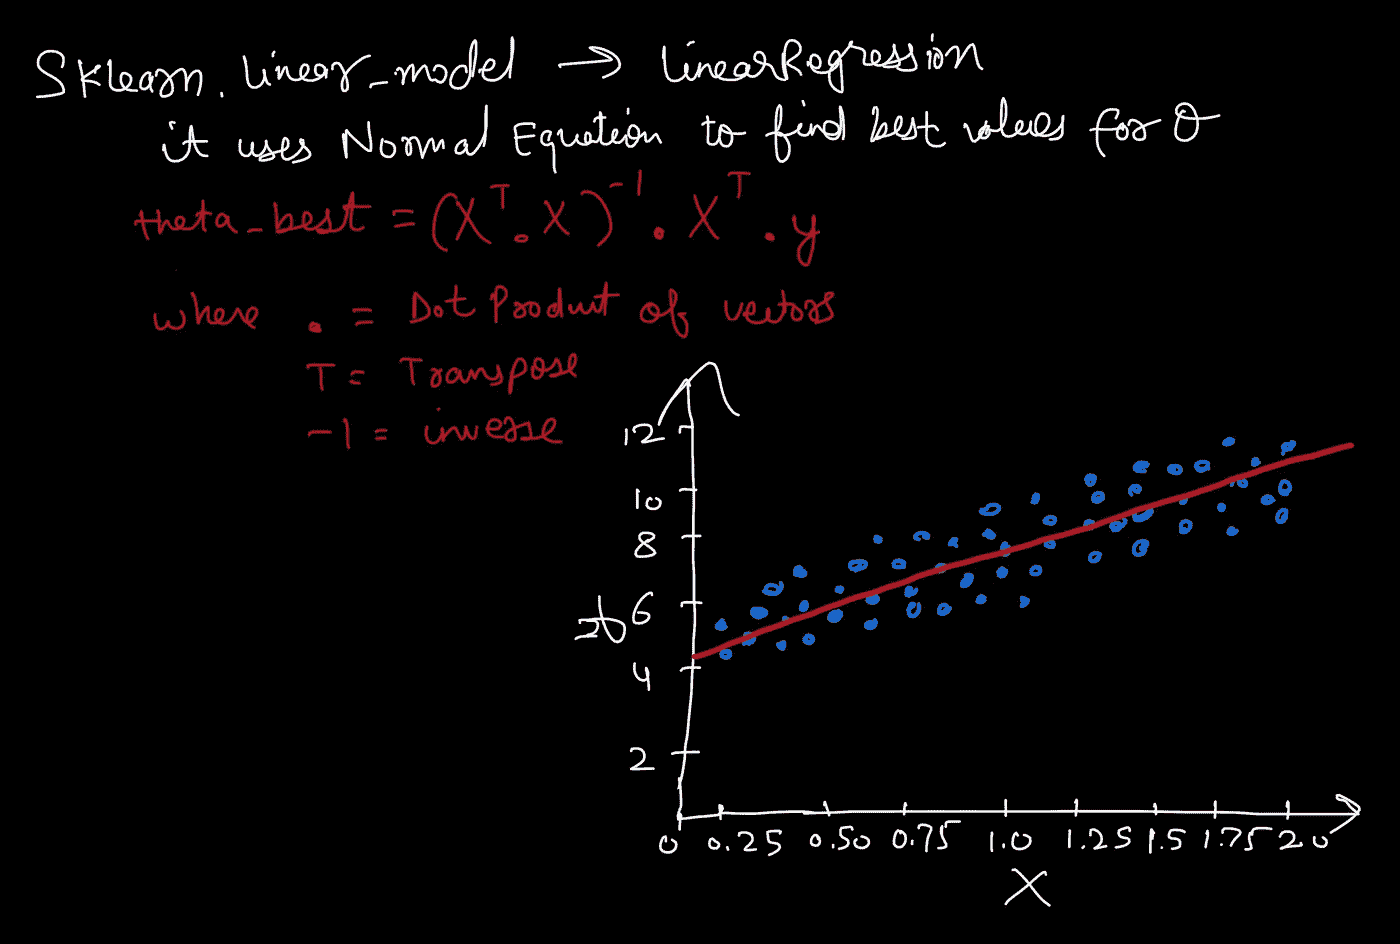 Sklearn. linear_model → LinearRegression
it uses Normal Equation to find best values for θ
theta_best = (X^T . X)^-1 . X^T . y
where . = Dot Product of vectors
T = Transpose
-1 = inverse
12
10
8
6
4
2
0 0.25 0.50 0.75 1.0 1.25 1.5 1.75 2.0
X